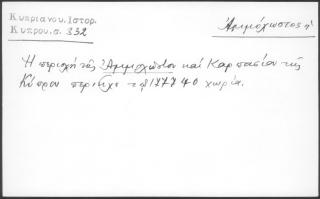 Κυπριανου.Ιστορ.
Κυπρου.σ.332
Ἀμμόχωστος ἡ
Ἡ περιοχὴ τῆς Ἀμμοχώστου καὶ Καρπασίου τῆς
Κύπρου περιεῖχε τῷ 1777 40 χωρία.